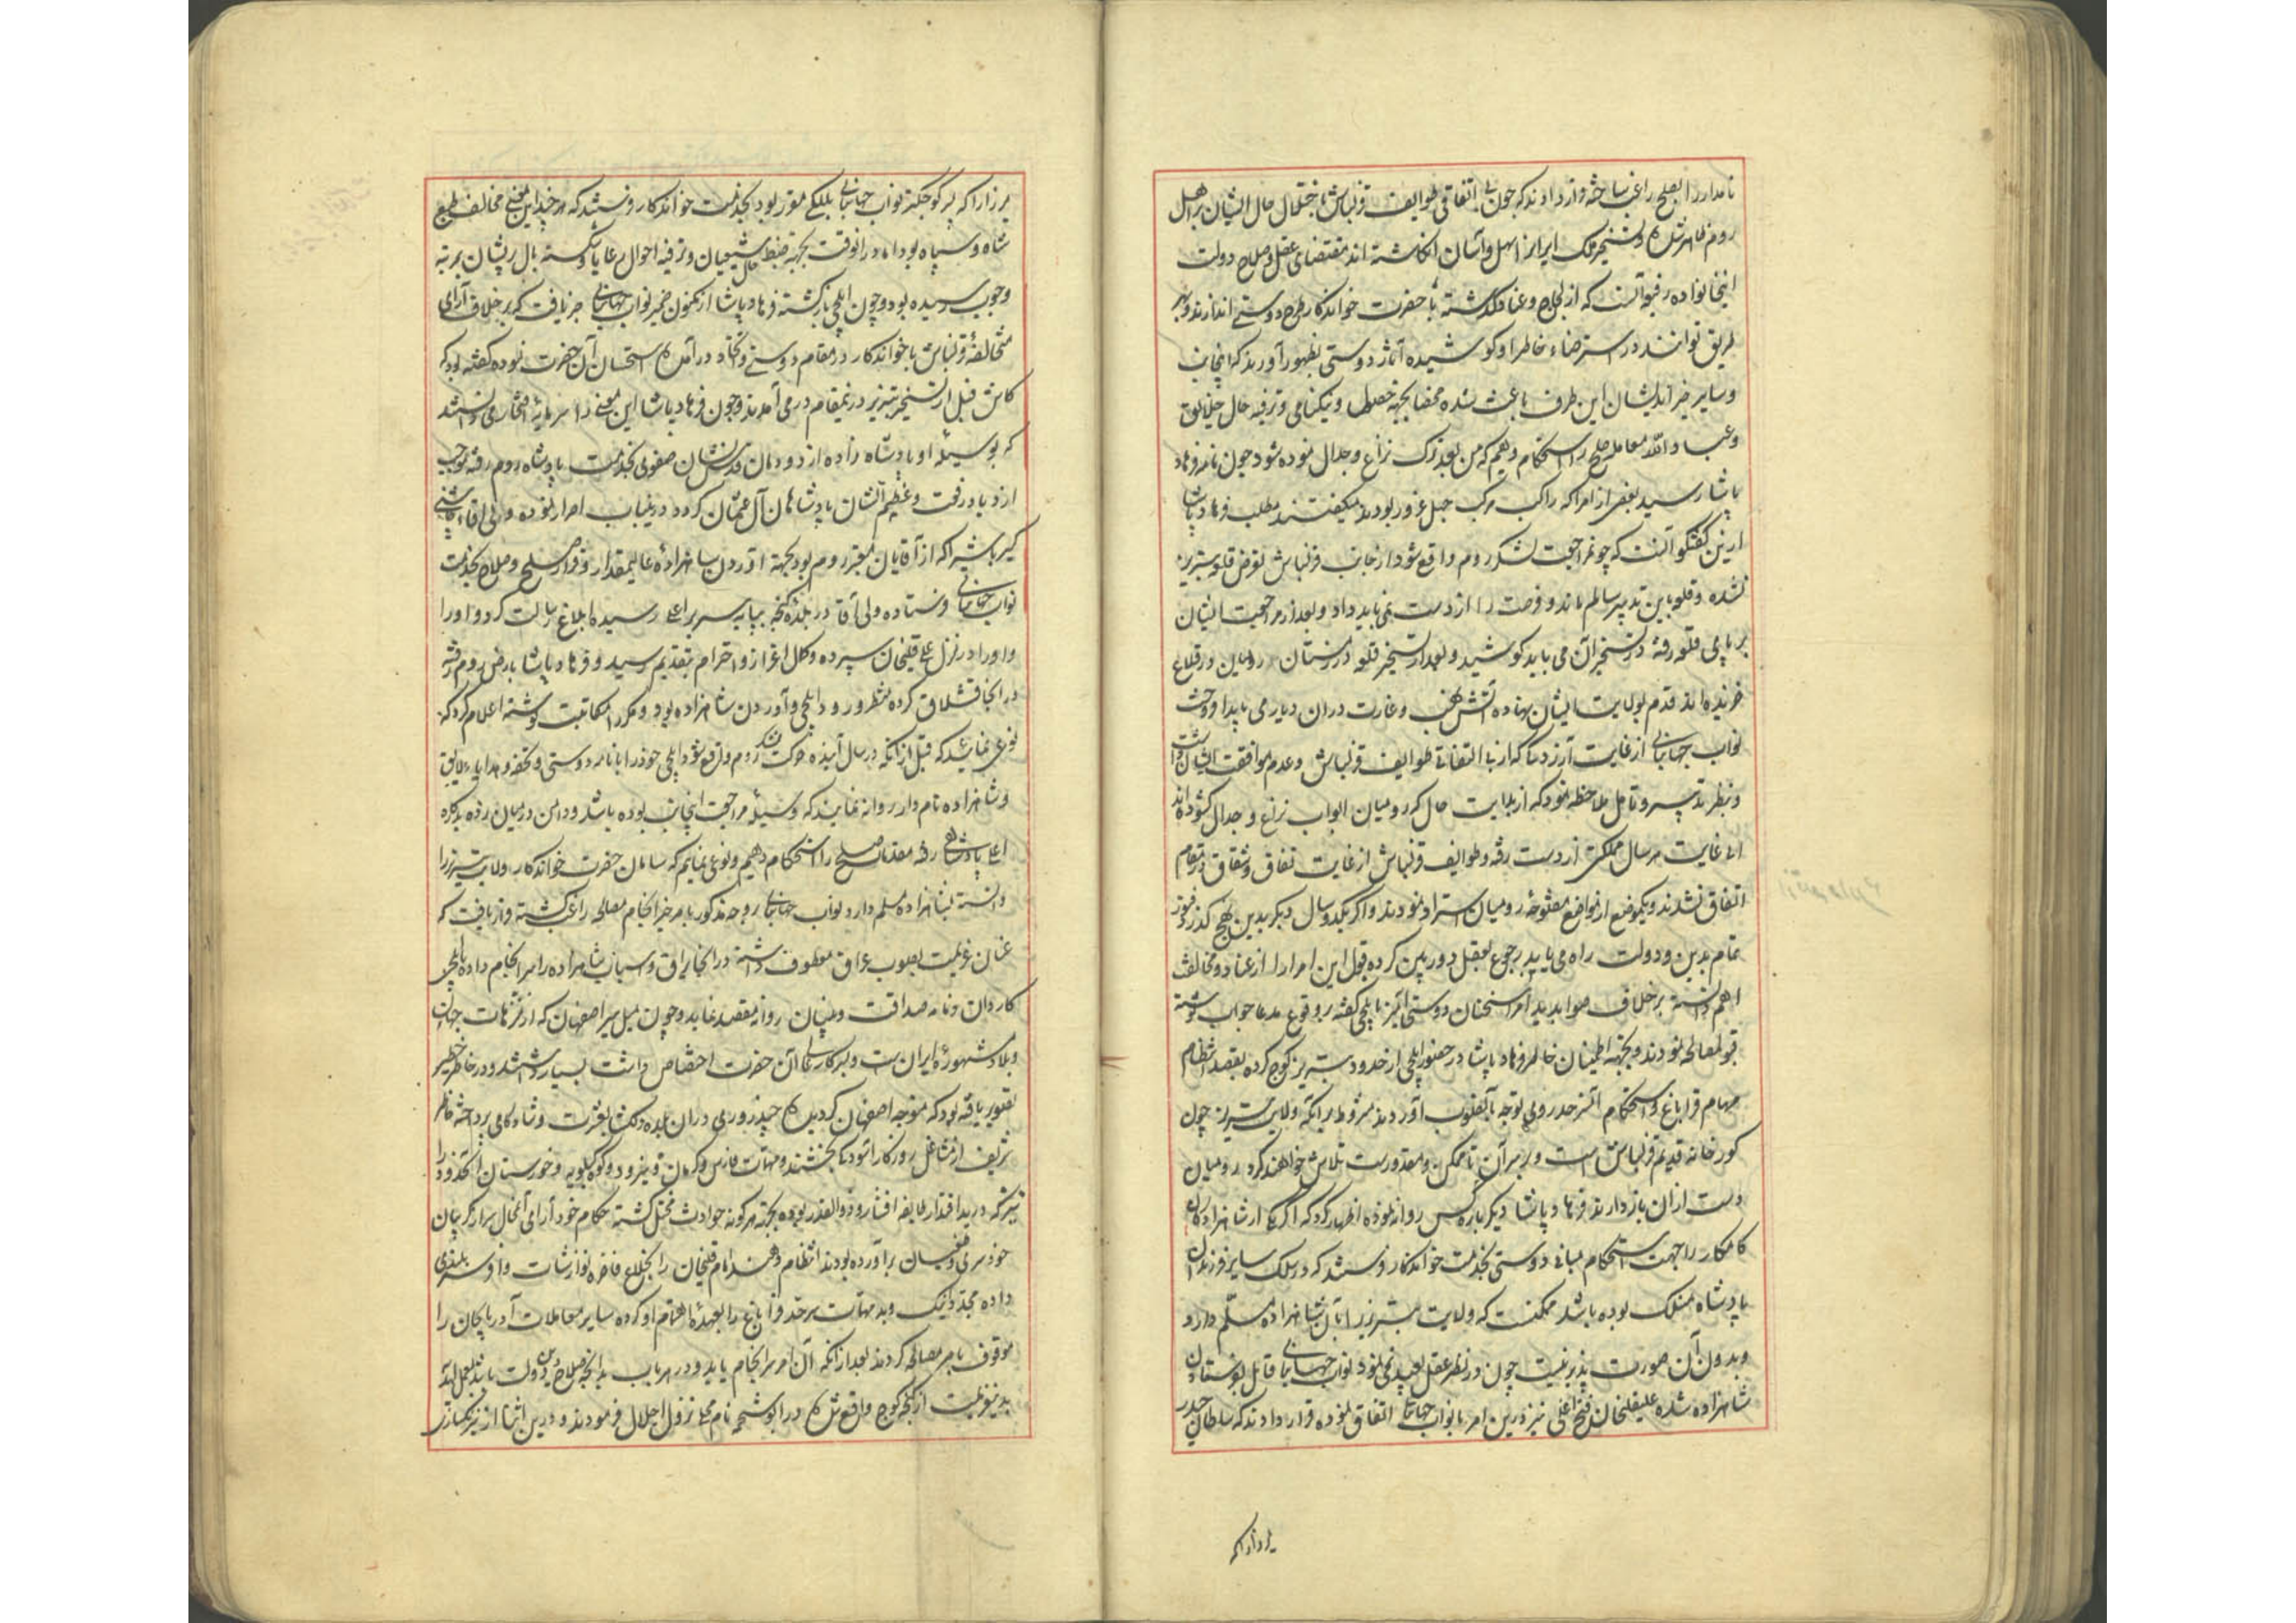 نامدار را بصلح راغب ساخته قرار دادند که چون بی اتفاقی طوایف قزلباش باختلال حال ایشان بر اهل
روم ظاهر شده تسخیر ملک ایران را سهل و آسان انگاشته اند مقتضای عقل و صلاح دولت
اینخانواده رفیعه آنست که از لجاج و عناد گذشته با حضرت خواندکار طرح دوستی اندازند و بهر
طریق توانند در استرضاء خاطر او کوشیده آثار دوستی بظهور آورند که اینجانب
و سایر خیراندیشان این طرف باعث شده محضا بجهة و نیکنامی و ترفیه حال خلایق
و عباد الله معامله صلح را استحکام دهیم که من بعد ترک نزاع و جدال نموده شود چون نامه فرهاد
پاشا رسید بعضی از امرا که راکب مرکب جهل و غرور بودند میگفتند مطلب فرهاد پاشا
ازین گفتگو آنست که چون مراجعت لشکر روم واقع شود از جانب قزلباش تعرض قلعه تبریز
نشده و قلعه باین تدبیر سالم ماند و فرصت را از دست نمی باید داد و بعد از مراجعت ایشان
بر پای قلعه رفته در تسخیر آن می باید کوشید و بعد از تسخیر قلعه در زمستان رومیان در قلاع
خزیده اند قدم بولایت ایشان نهاده آتش نهب و غارت دران دیار می باید افروخت
نواب جهانبانی از غایت آزردگی که از بی التفاتی طوایف قزلباش و عدم موافقت ایشان داشت
و بنظر تدبیر و تامل ملاحظه نمود که از بدایت حال که رومیان ابواب نزاع و جدال گشوده اند
الی غایت هر سال مملکتی از دست رفته و طوایف قزلباش از غایت نفاق و شقاق در مقام
اتفاق نشدند و یکموضع از مواضع مفتوحه رومیان استرداد ننمودند و اگر یکدو سال دیگر بدین نهج گذرد فتور
تمام بدین و دولت راه می یابد رجوع بعقل دوربین کرده قبول این امر را از عناد و مخالفت
اهم دانسته بر خلاف صوابدید امرا سخنان دوستی آمیز بایلچی گفته بر وقوع مدعا جواب نوشته
قبول مصالحه نمودند و بجهة اطمینان خاطر فرهاد پاشا در حضور ایلچی از حدود تبریز کوچ کرده بقصد انتظام
مهام قراباغ و استحکام آن سرحد روی توجه بآنصوب آوردند مشروط بر آنکه ولایت تبریز چون
کورخانه قدیم قزلباش است و بر سر آن تا ممکن و مقدورست تلاش خواهند کرد رومیان
دست ازان بازدارند فرهاد پاشا دیگر باره کس روانه نموده اظهار کرد که اگر یکی از شاهزادگان
کامکار را جهت استحکام مبانی دوستی بخدمت خواندکار فرستند که در سلک سایر فرزندان
پادشاه منسلک بوده باشد ممکنست که ولایت تبریز را بآن شاهزاده مسلم دارد و
و بدون آن صورت پذیر نیست چون در نظر عقل بعید نمی نمود نواب جهانبانی قایل بفرستادن
شاهزاده شده علیقلیخان فتح اغلی نیز درین امر با نواب جهانبانی اتفاق نموده قرار دادند که سلطان حیدر
میرزا را که پسر کوچکتر نواب جهانبانی بللکی مقرر بود بخدمت خواندکار فرستند که هر چند این معنی مخالف طبع
شاه و سپاه بود اما درانوقت بجهة ضبط حال شیعیان و ترفیه احوال رعایا شکسته بال پریشان بمرتبه
وجوب رسیده بود و چون ایلچی بازگشته فرهاد پاشا از مکنون ضمیر نواب جهانبانی خبر یافت که بر خلاف آرای
متخالفه قزلباش با خواندکار در مقام دوستی و اتحاد درآمده استحسان آن حضرت نموده گفته بود که
کاش قبل از تسخیر تبریز درینمقام در می آمدند و چون فرهاد پاشا این معنی را سرمایه افتخار می دانستند
که بوسیله او پادشاه زاده از دودمان قدس نشان صفوی بخدمت پادشاه روم رفته موجب
ازدیاد رفعت و عظیم الشان پادشاهان آل عثمان گردد درینباب اصرار نموده ولی آقاء چاشنی
گیر باشی را که از آقایان معتبر روم بود بجهة آوردن شاهزاده عالیمقدار و قرار صلح و صلاح بخدمت
نواب جهانبانی فرستاده ولی آقا در بلده گنجه بپایه سریر اعلی رسیده ابلاغ رسالت کرد و او را
و او را در منزل علیقلیخان سپرده و کمال اعزاز و احترام بتقدیم رسید و فرهاد پاشا بارض روم رفته
در آنجا قشلاق کرده منتظر ورود ایلچی و آوردن شاهزاده بود و مکررا مکاتبت نوشته اعلام کرد که
نوعی نمایند که قبل از آنکه در سال آینده حرکت لشکر روم واقع شود ایلچی خود را با نامه دوستی و تحفه و هدایاء لایق
و شاهزاده نامدار روانه نمایند که وسیله مراجعت اینجانب بوده باشد و دامن در میان زده بدرگاه
اعلی پادشاهی رفته مقدمات صلح را استحکام دهیم و نوعی نمایم که سامان حضرت خواندکار ولایت تبریز را
دانسته بشاهزاده مسلم دارد نواب جهانبانی بوجه مذکور بامر خیر انجام مصالحه راغب گشته قرار یافت که
عنان عزیمت بصوب عراق معطوف داشته در آنجا یراق و اسباب شاهزاده را سرانجام داده با ایلچی
کاردان و نامه صداقت و پیمان روانه مقصد نماید و چون میل سیر اصفهان که از نزهات جهان
و بلاد مشهوره ایران ست و بسرکار خاصه آن حضرت اختصاص داشت بسیار داشتند و در خاطر خطیر
تصویر یافته بود که متوجه اصفهان گردیده چند روزی دران بلده دلگشا بعشرت و شادکامی پرداخته خاطر
شریف از مشاغل روزگار آسودگی بخشند و مهمات فارس و کرمان و یزد و کوه کیلویه و خورستان
نیز که در ید اقتدار طایفه افشار و ذوالقدر بوده بجهة هر گونه حوادث مختل گشته حکام خود آرای آنمحال سر از گریبان
خودسری و عصیان برآورده بودند انتظام دهند امام قلیخان را بخلاع فاخره نوازشات و افسر بلندی
داده مجددا نیک و بد مهمات سرحد قراباغ را بعهده اهتمام او کرده سایر معاملات آذربایجان را
موقوف بامر مصالحه کردند بعد ازانکه آن امر سرانجام یابد و در هر باب بدانچه صلاح دین دولت باشد بعمل آید
بدینعزیمت از گنجه کوچ واقع شده در ابوشحمه نام محلی نزول اجلال فرمودند و درین اثنا از نیرنگسازی